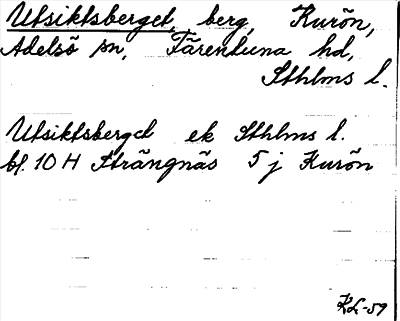 Utsiktsberget, berg, Kurön,
Adelsö sn, Färentuna hd,
Sthlms l.
Utsiktsberget ek Sthlms l.
bl. 10 H Strängnäs 5 j Kurön
KL-59